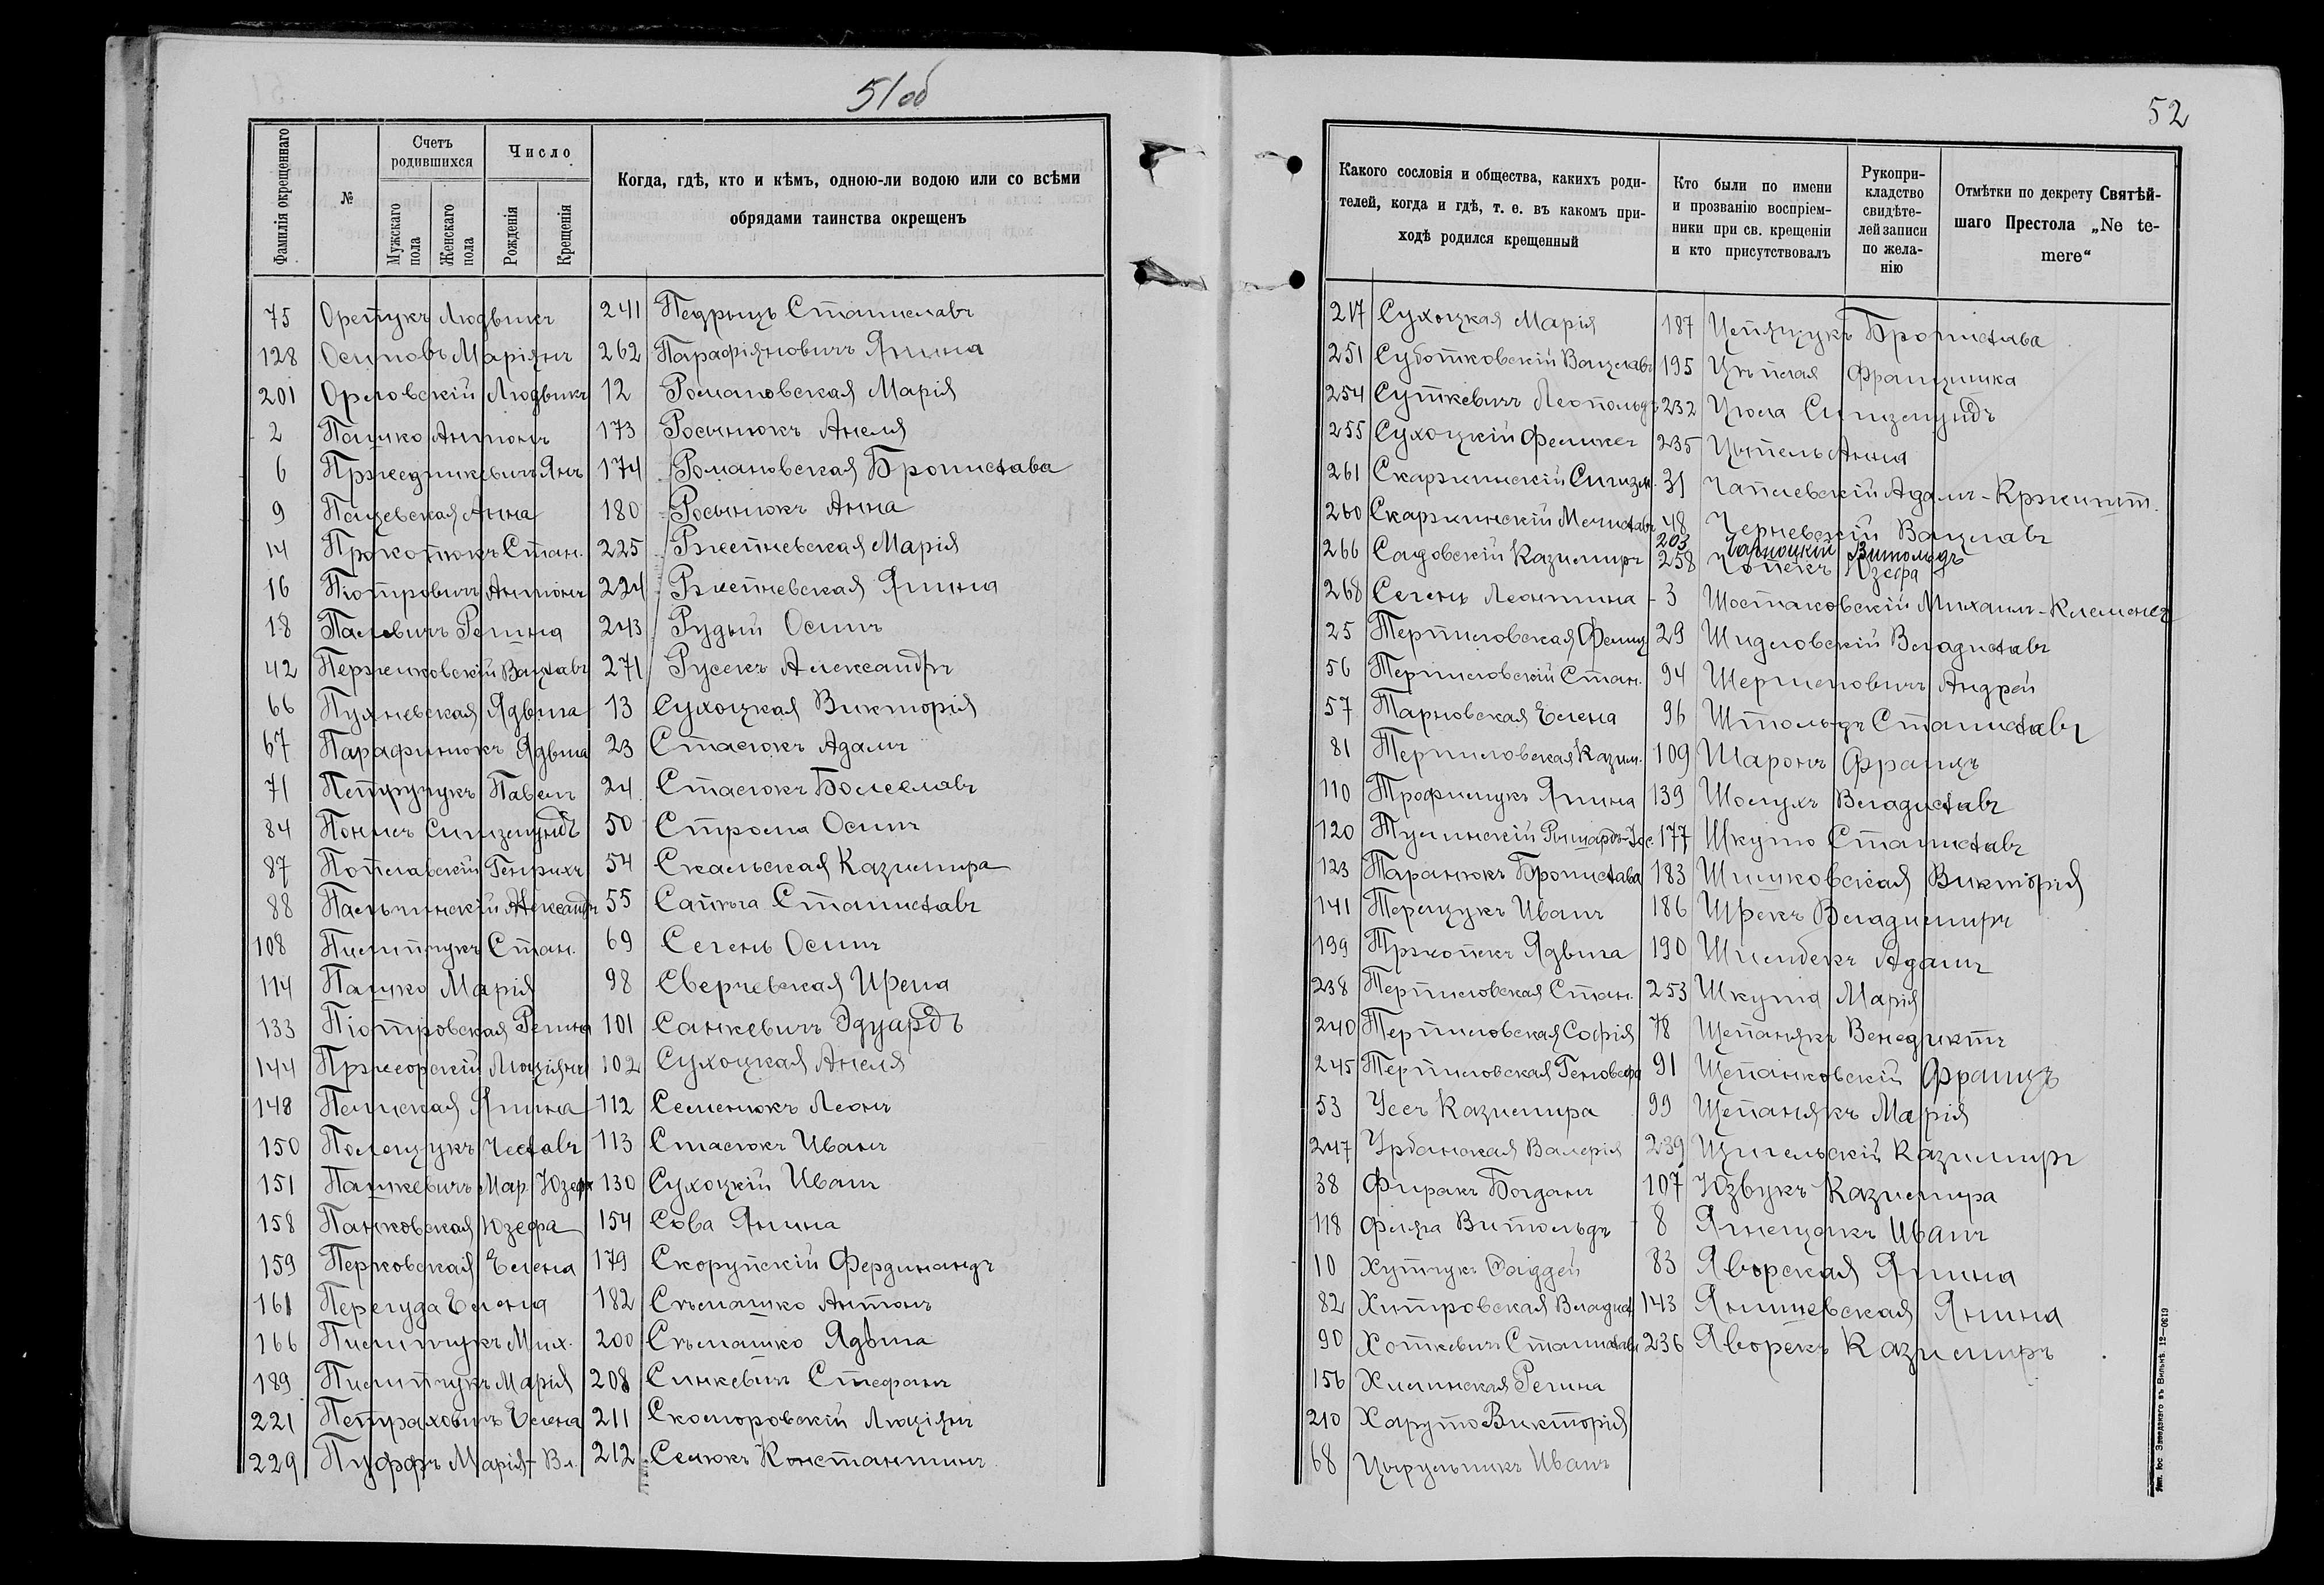 51об
Фамилія окрещеннаго
№
Счетъ родившихся
Мужскаго пола
Женскаго пола
Число
Рожденія
Крещенія
Когда, гдѣ, кто и кѣмъ, одною-ли водою или со всѣми
обрядами таинства окрещенъ
75 Оретукъ Людвикъ
128 Осиповъ Маріянъ
201 Орловскій Людвикъ
2 Пашко Антонъ
6 Янъ
9 Пацевская Анна
14 Прокопюкъ Стан.
16 Піотровичъ Антонъ
18 Палевичъ Регина
42 Вацлавъ
66 Пухневская Ядвига
67 Парафинюкъ Ядвига
71 Петручукъ Павелъ
84 Сигизмундъ
87 Генрихъ
88 Пальчинскій Александръ
108 Пилипчукъ Стан.
114 Пашко Марія
133 Піотровская Регина
144 Люціянъ
148 Янина
150 Полещукъ Чеславъ
151 Пашкевичъ Мар. Юзефа
158 Панковская Юзефа
159 Перковская Елена
161 Перегуда Елена
166 Пилипчукъ Мих.
189 Пилипчукъ Марія
221 Петраховичъ Елена
229 Пуффъ Марія-Вл.
241 Педрыцъ Станиславъ
262 Парафіяновичъ Янина
12 Романовская Марія
173 Росынюкъ Анеля
174 Романовская Брониславa
180 Росынюкъ Анна
225 Ржепневская Марія
224 Ржепневская Янина
243 Рудый Осипъ
271 Русекъ Александръ
13 Сухоцкая Викторія
23 Стасюкъ Адамъ
24 Стасюкъ Болеславъ
50 Строма Осипъ
54 Скальская Казимира
55 Сапѣга Станиславъ
69 Сегень Осипъ
98 Сверчевская Ирена
101 Санкевичъ Эдуардъ
102 Сухоцкая Анеля
112 Семенюкъ Леонъ
113 Стасюкъ Иванъ
130 Сухоцкій Иванъ
154 Сова Янина
179 Скорупскій Фердинандъ
182 Сѣмашко Антонъ
200 Сѣмашко Ядвига
208 Синкевичъ Стефанъ
211 Скоморовскій Люціянъ
212 Семюкъ Константинъ
52
Какого сословія и общества, какихъ роди-
телей, когда и гдѣ, т. е. въ какомъ при-
ходѣ родился крещенный
Кто были по имени
и прозванію воспріем-
ники при св. крещеніи
и кто присутствовалъ
Рукопри-
кладство
свидѣте-
лей записи
по жела-
нію
Отмѣтки по декрету Святѣй-
шаго Престола „Ne te-
mere“
217 Сухоцкая Марія
251 Суботковскій Вацлавъ
254 Суткевичъ Леопольдъ
255 Сухоцкій Феликсъ
261 Скаржинскій Сигизм.
260 Скаржинскій Мечиславъ
266 Садовскій Казимиръ
268 Сегень Леонтина
25 Терпиловская Фелиц.
56 Терпиловскій Стан.
57 Тарновская Елена
81 Терпиловская Казим.
110 Трофимукъ Янина
120 Тулинскій Рышардъ-Іос.
123 Таранюкъ Бронислава
141 Терещукъ Иванъ
199 Ядвига
238 Терпиловская Стан.
240 Терпиловская Софія
245 Терпиловская Геновефа
53 Усъ Казимира
247 Урбанская Валерія
38 Фиракъ Богданъ
118 Филга Витольдъ
10 Хутчукъ Фаддей
82 Хитровская Владисл.
90 Хоткевичъ Станиславъ
156 Хилинская Регина
210 Харуто Викторія
68 Цырульникъ Иванъ
187 Цепящукъ Бронислава
195 Цѣплая Францишка
232 Цюпа Сигизмундъ
235 Цыпель Анна
31 Чаплевскій Адамъ-Кржишт.
48 Черневскій Вацлавъ
203 Чарноцкій Витольдъ
258 Чопекъ Юзефа
3 Шостаковскій Михаилъ-Клеменсъ
29 Шидловскій Владиславъ
94 Шерметовичъ Андрей
96 Штольдъ Станиславъ
109 Шаронъ Францъ
139 Шолухъ Владиславъ
177 Шкуто Станиславъ
183 Шишковская Викторія
186 Шрекъ Владимиръ
190 Шимбекъ Адамъ
253 Шкута Марія
78 Щепанякъ Бенедиктъ
91 Щепанковскій Францъ
99 Щепанякъ Марія
239 Щигельскій Казимиръ
107 Юзвукъ Казимира
8 Янещакъ Иванъ
83 Яворская Янина
143 Янишевская Янина
236 Яворекъ Казимиръ
Тип. Іос. Завадзкаго въ Вильнѣ. 12—0619